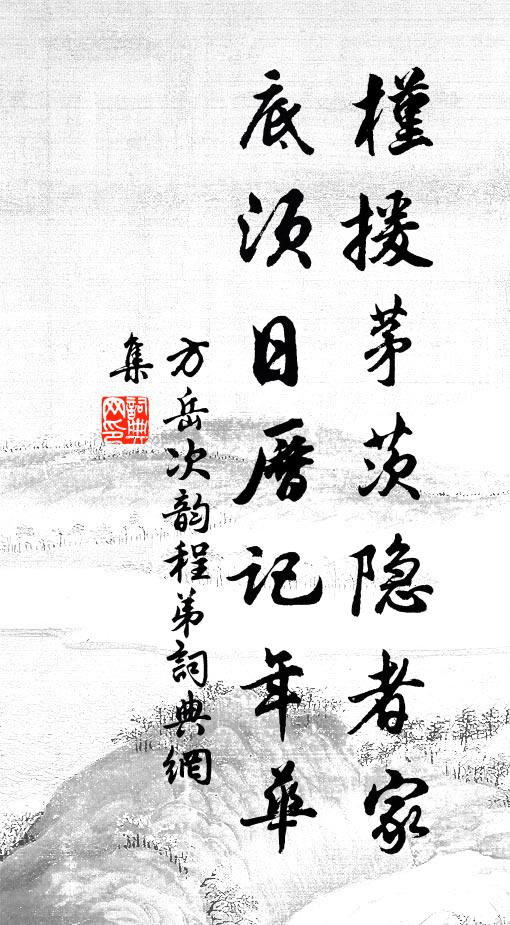 槿援茅茨隐者家
底须日曆记年华
方岳次韵程弟詞典網
集
詞典网印